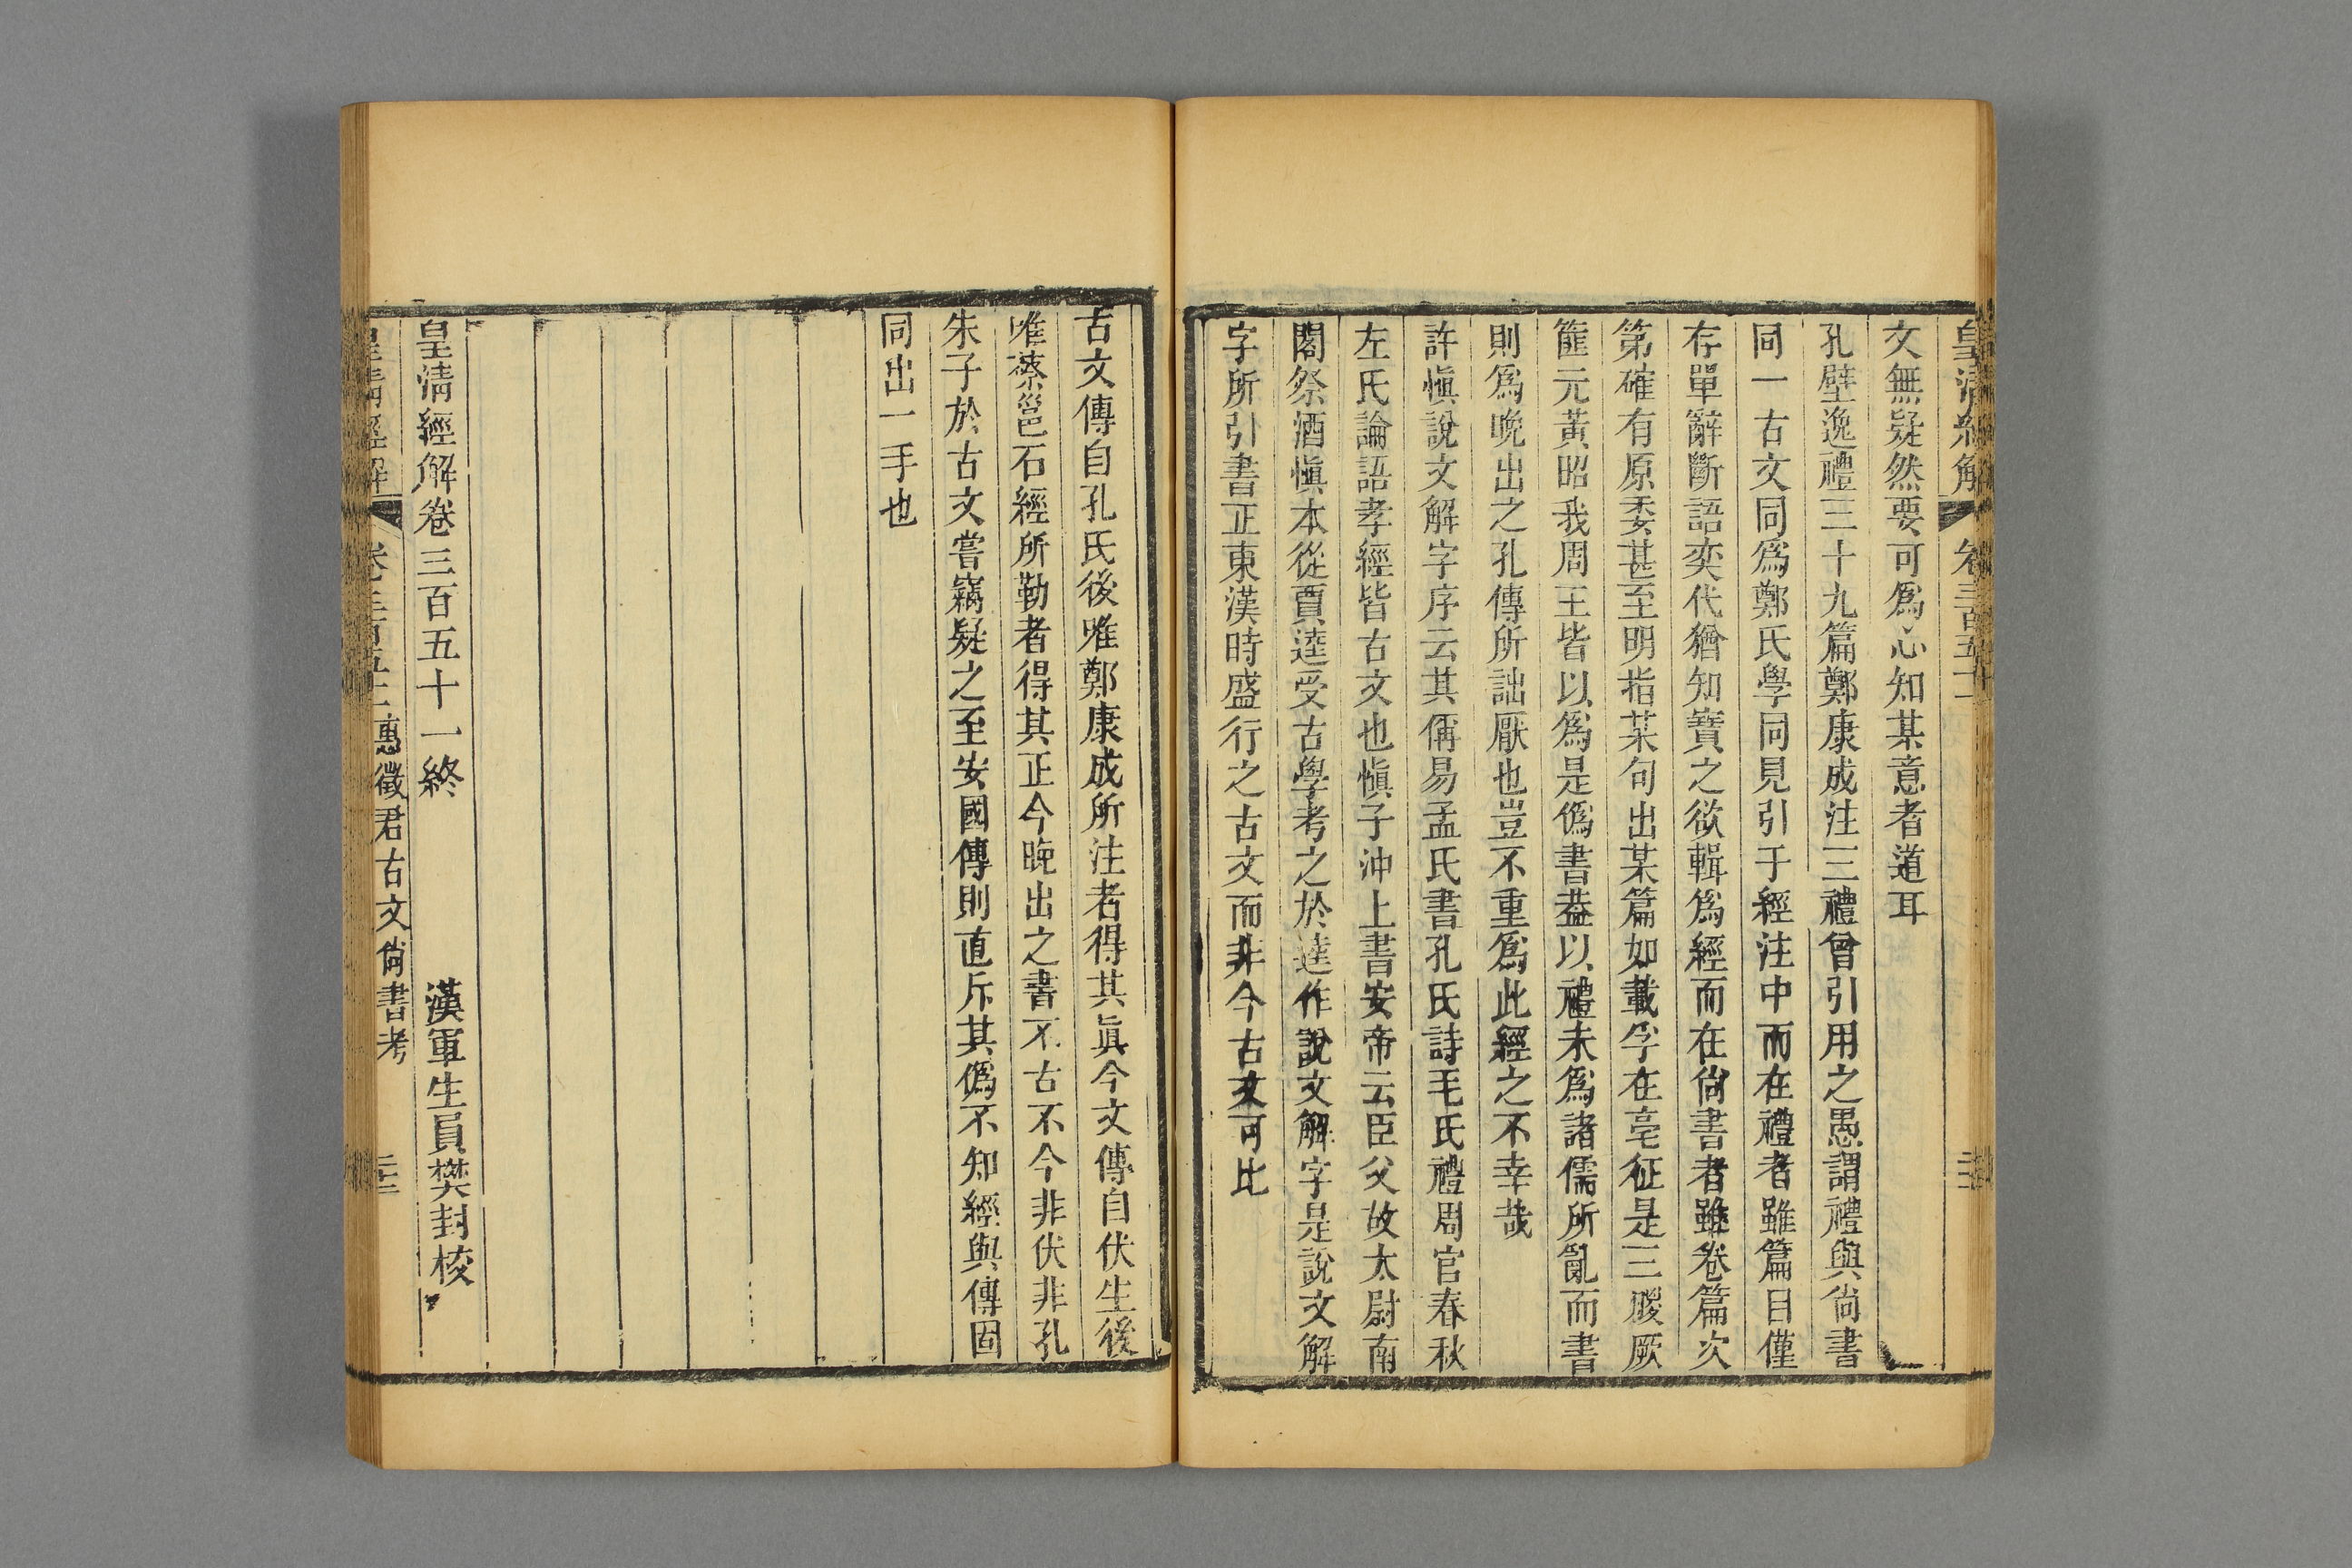 皇清經解 卷三百五十一
文無疑然要可爲心知某意者道耳
孔壁逸禮三十九篇鄭康成注三禮曾引用之愚謂禮與尙書
同一古文同爲鄭氏學同見引于經注中而在禮者雖篇目僅
存單辭斷語奕代猶知寶之欲輯爲經而在尙書者雖卷篇次
第確有原委甚至明指某句出某篇如載孚在亳征是三朡厥
篚元黃昭我周王皆以爲是僞書葢以禮未爲諸儒所亂而書
則爲晚出之孔傳所詘厭也豈不重爲此經之不幸哉
許愼說文解字序云其偁易孟氏書孔氏詩毛氏禮周官春秋
左氏論語孝經皆古文也愼子沖上書安帝云臣父故太尉南
閣祭酒愼本從賈逵受古學考之於逵作說文解字是說文解
字所引書正東漢時盛行之古文而非今古文可比
古文傳自孔氏後唯鄭康成所注者得其眞今文傳自伏生後
唯蔡邕石經所勒者得其正今晚出之書不古不今非伏非孔
朱子於古文嘗竊疑之至安國傳則直斥其僞不知經與傳固
同出一手也
皇清經解卷三百五十一終 漢軍生員樊封校
皇清經解 卷三百五十一 惠徵君古文尙書考